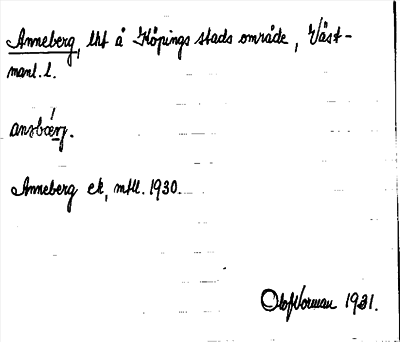 Anneberg, lht å Köpings stads område, Väst-
manl. l.
ansbærj.
Anneberg ek, mtll. 1930.
Olof Norman 1931.